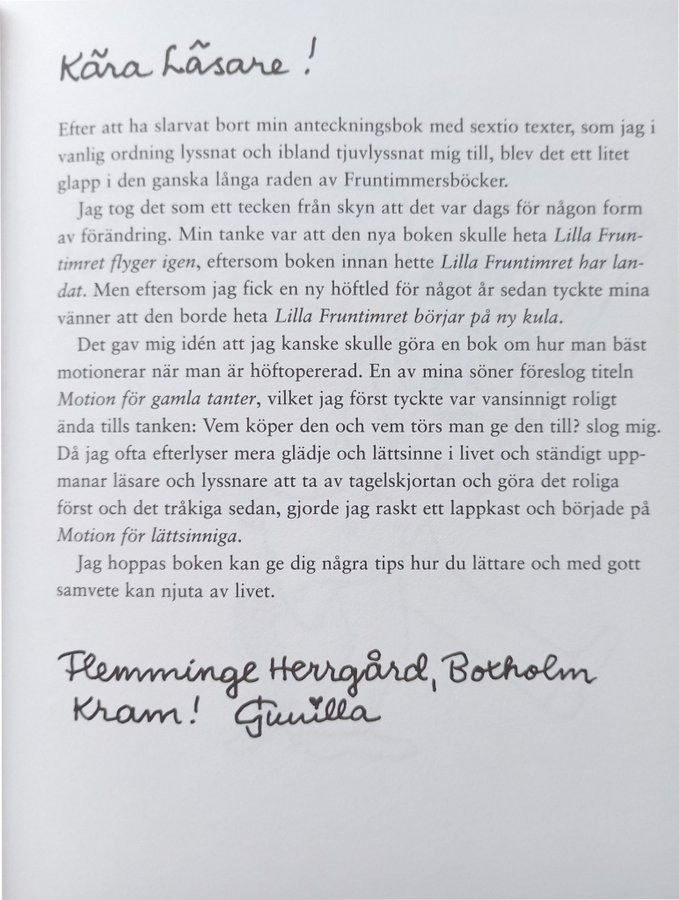 Kära Läsare!
Efter att ha slarvat bort min anteckningsbok med sextio texter, som jag i
vanlig ordning lyssnat och ibland tjuvlyssnat mig till, blev det ett litet
glapp i den ganska långa raden av Fruntimmersböcker.
Jag tog det som ett tecken från skyn att det var dags för någon form
av förändring. Min tanke var att den nya boken skulle heta Lilla Frun-
timret flyger igen, eftersom boken innan hette Lilla Fruntimret har lan-
dat. Men eftersom jag fick en ny höftled för något år sedan tyckte mina
vänner att den borde heta Lilla Fruntimret börjar på ny kula.
Det gav mig idén att jag kanske skulle göra en bok om hur man bäst
motionerar när man är höftopererad. En av mina söner föreslog titeln
Motion för gamla tanter, vilket jag först tyckte var vansinnigt roligt
ända tills tanken: Vem köper den och vem törs man ge den till? slog mig.
Då jag ofta efterlyser mera glädje och lättsinne i livet och ständigt upp-
manar läsare och lyssnare att ta av tagelskjortan och göra det roliga
först och det tråkiga sedan, gjorde jag raskt ett lappkast och började på
Motion för lättsinniga.
Jag hoppas boken kan ge dig några tips hur du lättare och med gott
samvete kan njuta av livet.
Flemminge Herrgård, Boxholm
Kram! Gunilla